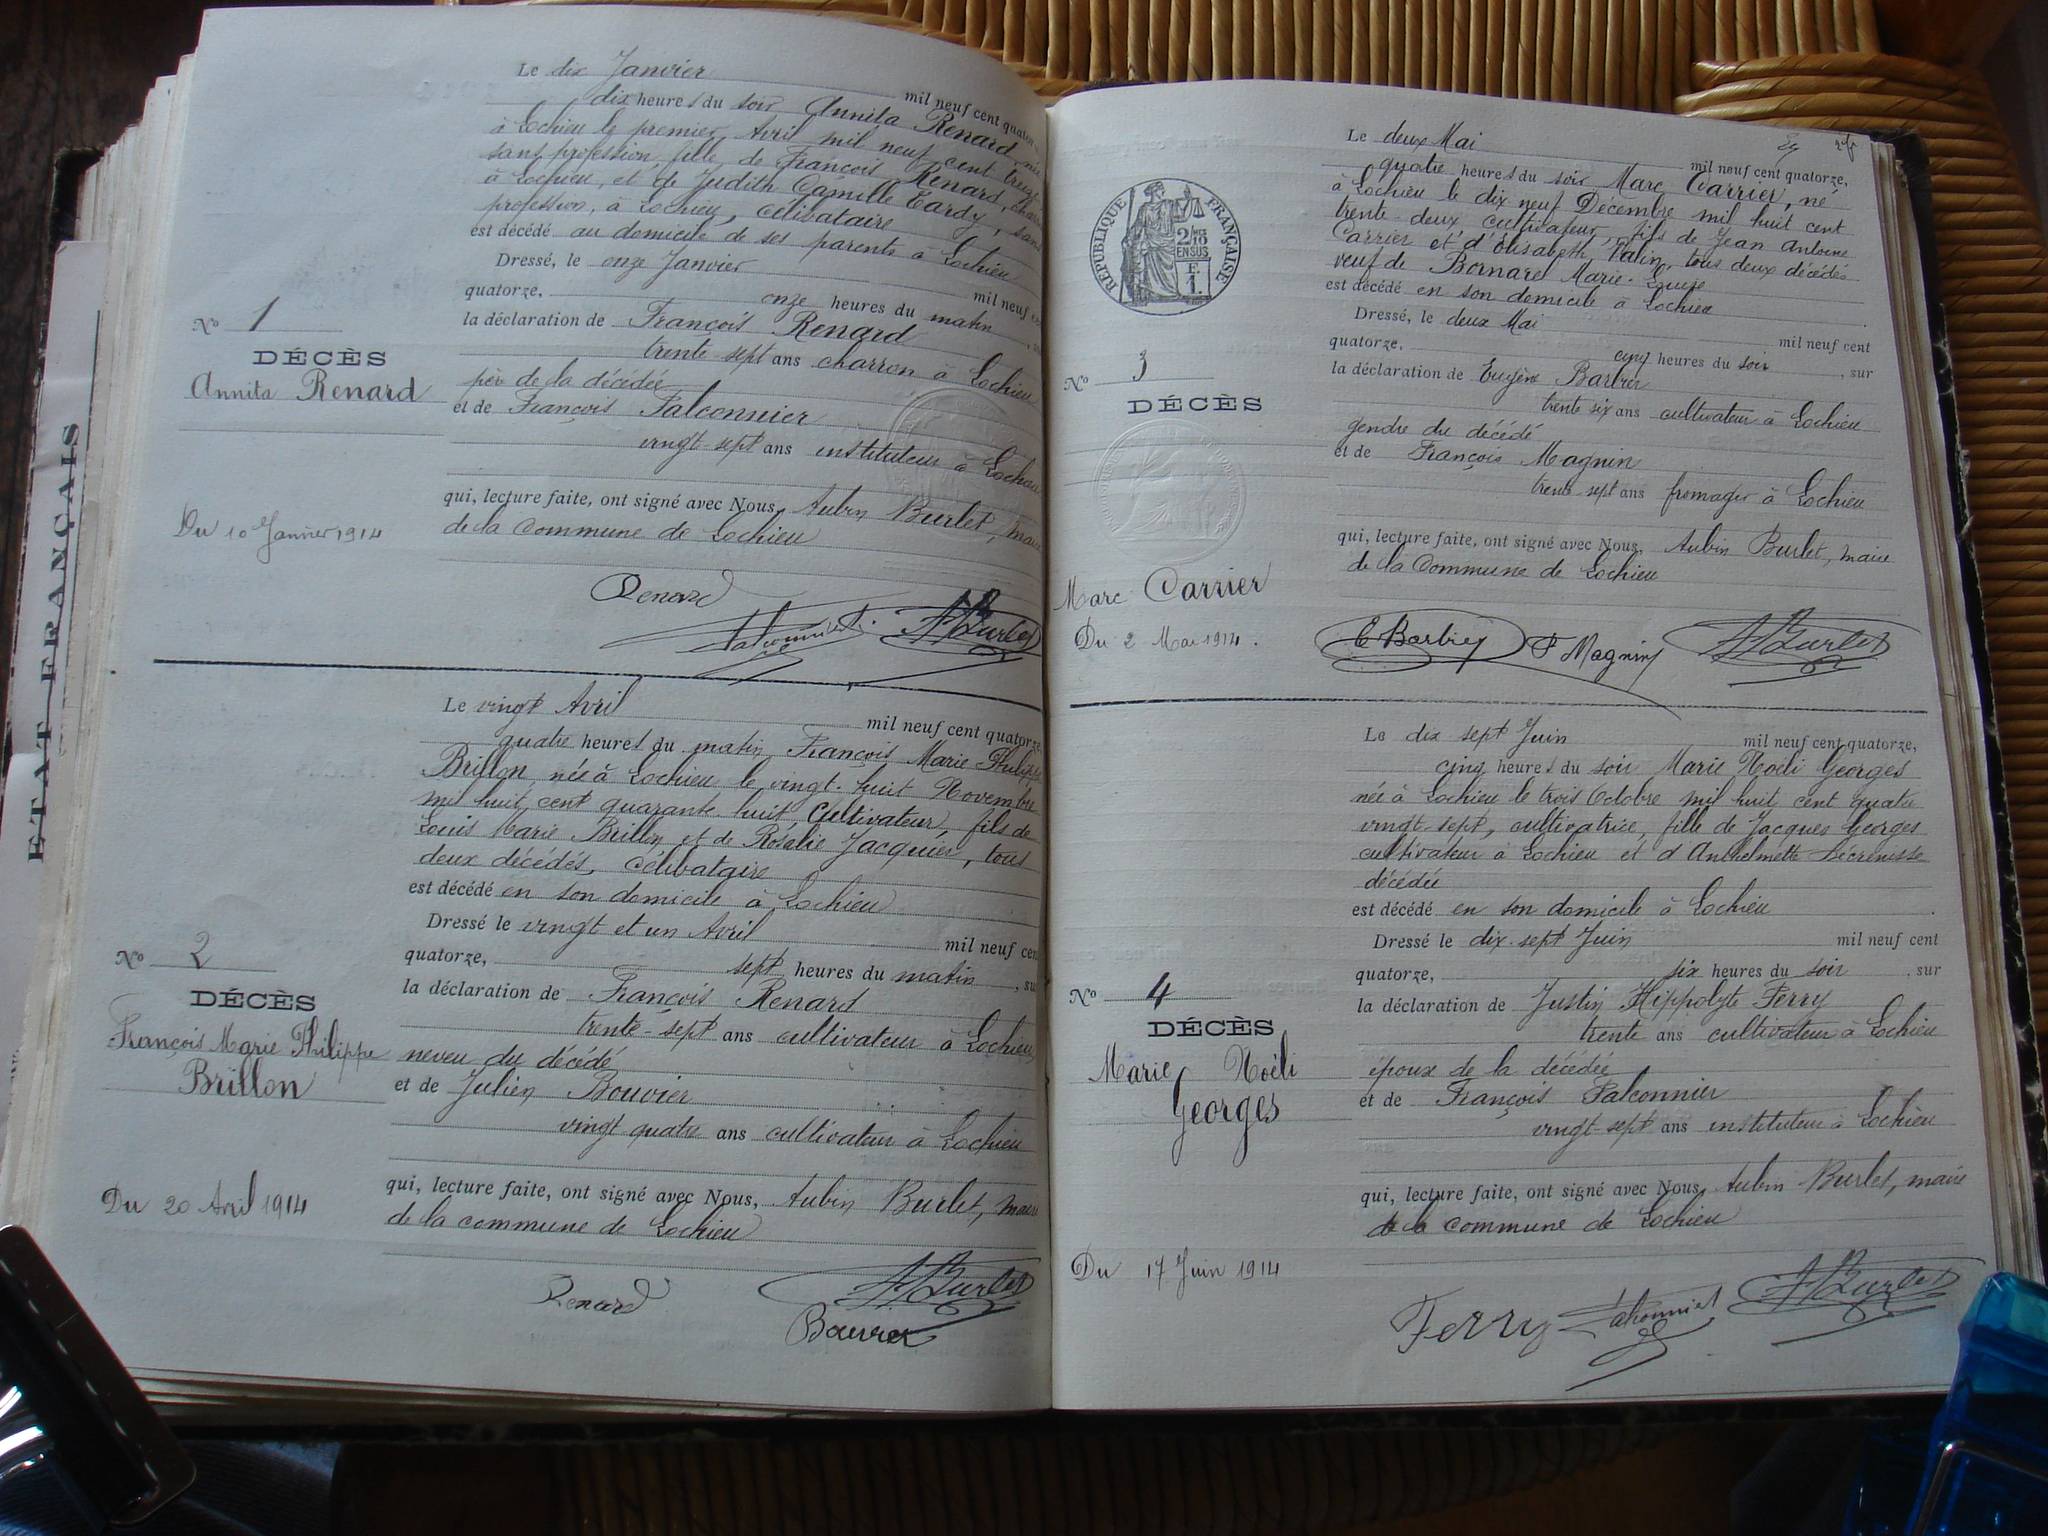 ETAT FRANÇAIS
Le dix Janvier mil neuf cent quator
dix heures du soir Annita Renard, née
à Lochieu le premier Avril mil neuf cent treize
sans profession, fille de François Renard, charron
à Lochieu, et de Judith Camille Tardy, sans
profession, à Lochieu, célibataire
est décédé au domicile de ses parents à Lochieu
Dressé, le onze Janvier mil neuf cent
quatorze, onze heures du matin
la déclaration de François Renard
trente-sept ans charron à Lochieu
père de la décédée
et de François Falconnier
vingt-sept ans instituteur à Lochieu
qui, lecture faite, ont signé avec Nous, Aubin Burlet, maire
de la Commune de Lochieu
No 1
DÉCÈS
Annita Renard
Du 10 Janvier 1914
Renard
Falconnier
A Burlet
Le vingt Avril mil neuf cent quatorze,
quatre heures du matin, François Marie Philippe
Brillon, née à Lochieu le vingt-huit Novembre
mil huit cent quarante huit, Cultivateur, fils de
Louis Marie Brillon et de Rosalie Jacquier, tous
deux décédés, célibataire
est décédé en son domicile à Lochieu
Dressé le vingt et un Avril mil neuf cent
quatorze, sept heures du matin, su
la déclaration de François Renard
trente-sept ans cultivateur à Lochieu
neveu du décédé
et de Julien Bouvier
vingt quatre ans cultivateur à Lochieu
qui, lecture faite, ont signé avec Nous, Aubin Burlet, maire
de la commune de Lochieu
No 2
DÉCÈS
François Marie Philippe
Brillon
Du 20 Avril 1914
Renard
A Burlet
Bouvier
RÉPUBLIQUE FRANÇAISE
2/10 EN SUS
F.
1.
Le deux Mai mil neuf cent quatorze,
quatre heures du soir Marc Carrier, né
à Lochieu le dix neuf Décembre mil huit cent
trente-deux cultivateur, fils de Jean Antoine
Carrier et d'Elisabeth Valin, tous deux décédés
veuf de Bornard Marie-Louise
est décédé en son domicile à Lochieu
Dressé, le deux Mai mil neuf cent
quatorze, cinq heures du soir, sur
la déclaration de Eugène Barbier
trente six ans cultivateur à Lochieu
gendre du décédé
et de François Magnin
trente-sept ans fromager à Lochieu
qui, lecture faite, ont signé avec Nous, Aubin Burlet, maire
de la Commune de Lochieu
No 3
DÉCÈS
Marc Carrier
Du 2 Mai 1914.
E Barbier
F Magnin
A Burlet
Le dix sept Juin mil neuf cent quatorze,
cinq heures du soir Marie Noëli Georges
née à Lochieu le trois Octobre mil huit cent quatre
vingt-sept, cultivatrice, fille de Jacques Georges
cultivateur à Lochieu et d'Anthelmette Lécrenisse
décédée
est décédé en son domicile à Lochieu
Dressé le dix-sept Juin mil neuf cent
quatorze, six heures du soir, sur
la déclaration de Justin Hippolyte Ferry
trente ans cultivateur à Lochieu
époux de la décédée
et de François Falconnier
vingt-sept ans instituteur à Lochieu
qui, lecture faite, ont signé avec Nous, Aubin Burlet, maire
de la commune de Lochieu
No 4
DÉCÈS
Marie Noëli
Georges
Du 17 Juin 1914
Ferry
Falconnier
A Burlet